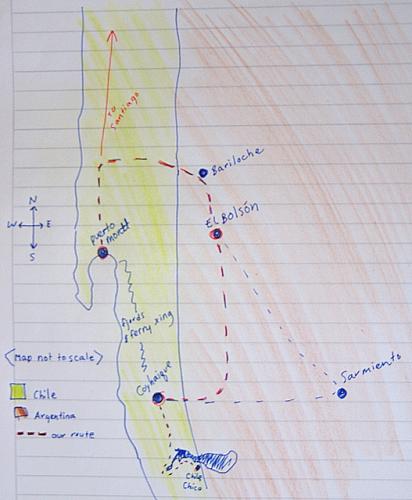 To
Santiago
Bariloche
El Bolsón
N
W E
S
puerto
montt
fjords
& ferry xing
<Map not to scale>
Coyhaique
Sarmiento
Chile
Argentina
our route
Chile
Chico